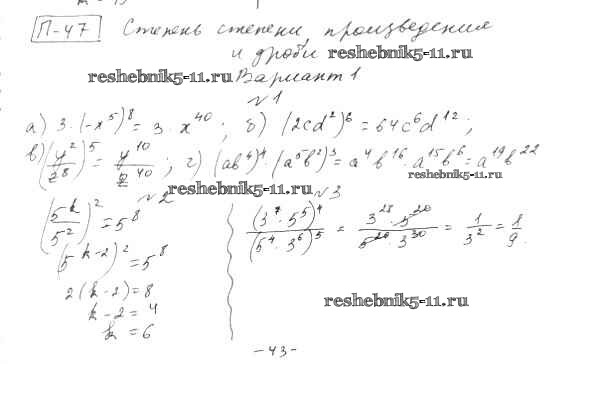 П-47 Степень степени, произведения
и дроби reshebnik5-11.ru
reshebnik5-11.ru Вариант 1
№1
а) 3·(-x⁵)⁸ = 3·x⁴⁰; б) (2cd²)⁶ = 64c⁶d¹²;
в) (y²/z⁸)⁵ = y¹⁰/z⁴⁰; г) (ab⁴)⁴·(a⁵b²)³ = a⁴b¹⁶·a¹⁵b⁶ = a¹⁹b²²
reshebnik5-11.ru
№2 reshebnik5-11.ru №3
(5ᵏ/5²)² = 5⁸
(5ᵏ⁻²)² = 5⁸
2(k-2) = 8
k-2 = 4
k = 6
(3⁷·5⁵)⁴/(5⁴·3⁶)⁵ = 3²⁸·5²⁰/5²⁰·3³⁰ = 1/3² = 1/9.
reshebnik5-11.ru
-43-